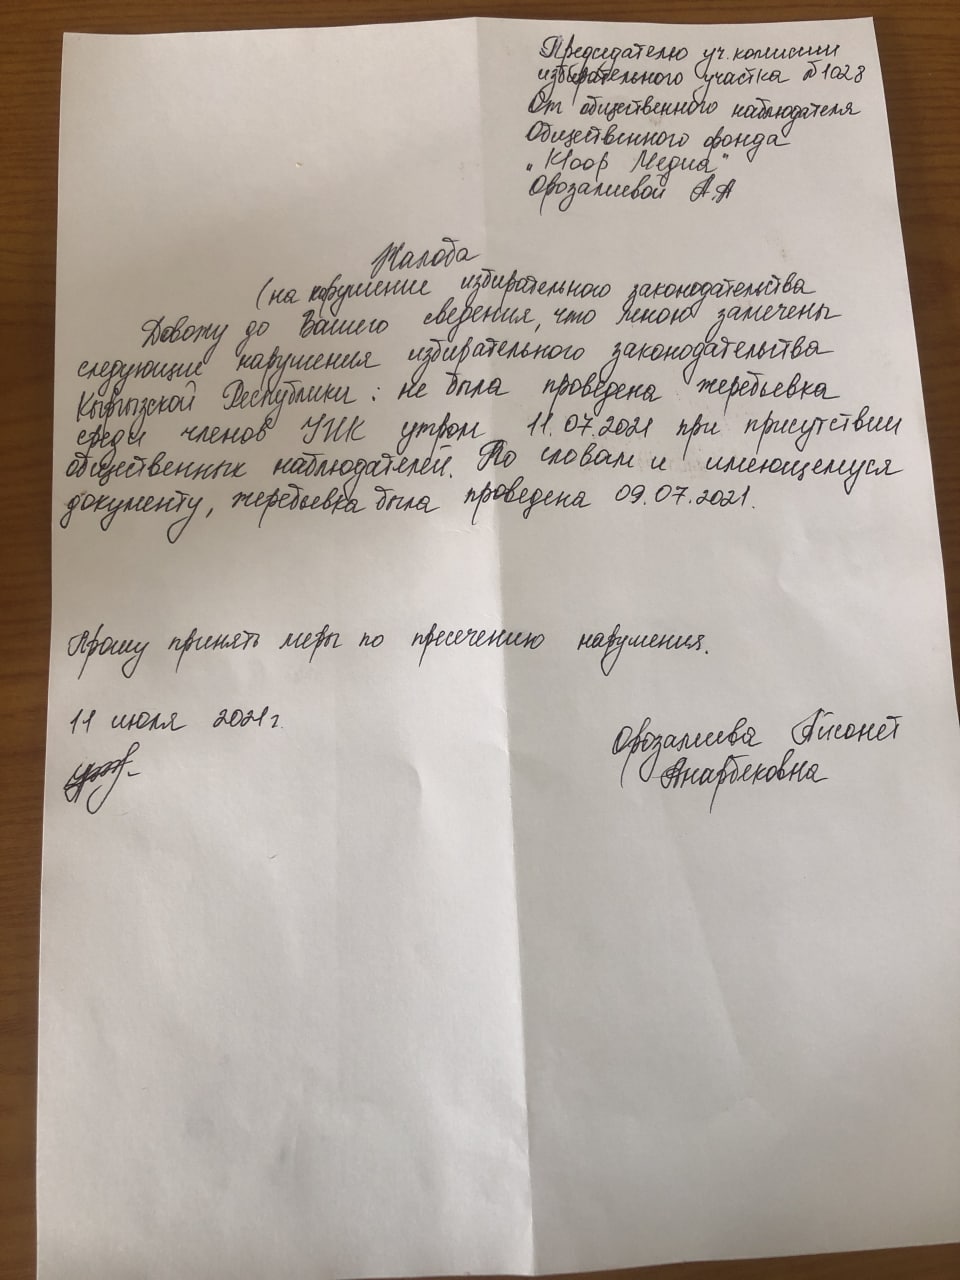 Председателю уч. комиссии
избирательного участка №1028
От общественного наблюдателя
Общественного фонда
"Клооп Медиа"
Орозалиевой А.А
Жалоба
(на нарушение избирательного законодательства
Довожу до Вашего сведения, что мною замечены
следующие нарушения избирательного законодательства
Кыргызской Республики: не была проведена жеребьевка
среди членов УИК утром 11.07.2021 при присутствии
общественных наблюдателей. По словам и имеющемуся
документу, жеребьевка была проведена 09.07.2021.
Прошу принять меры по пресечению нарушения.
11 июля 2021г.
Орозалиева
Анарбековна